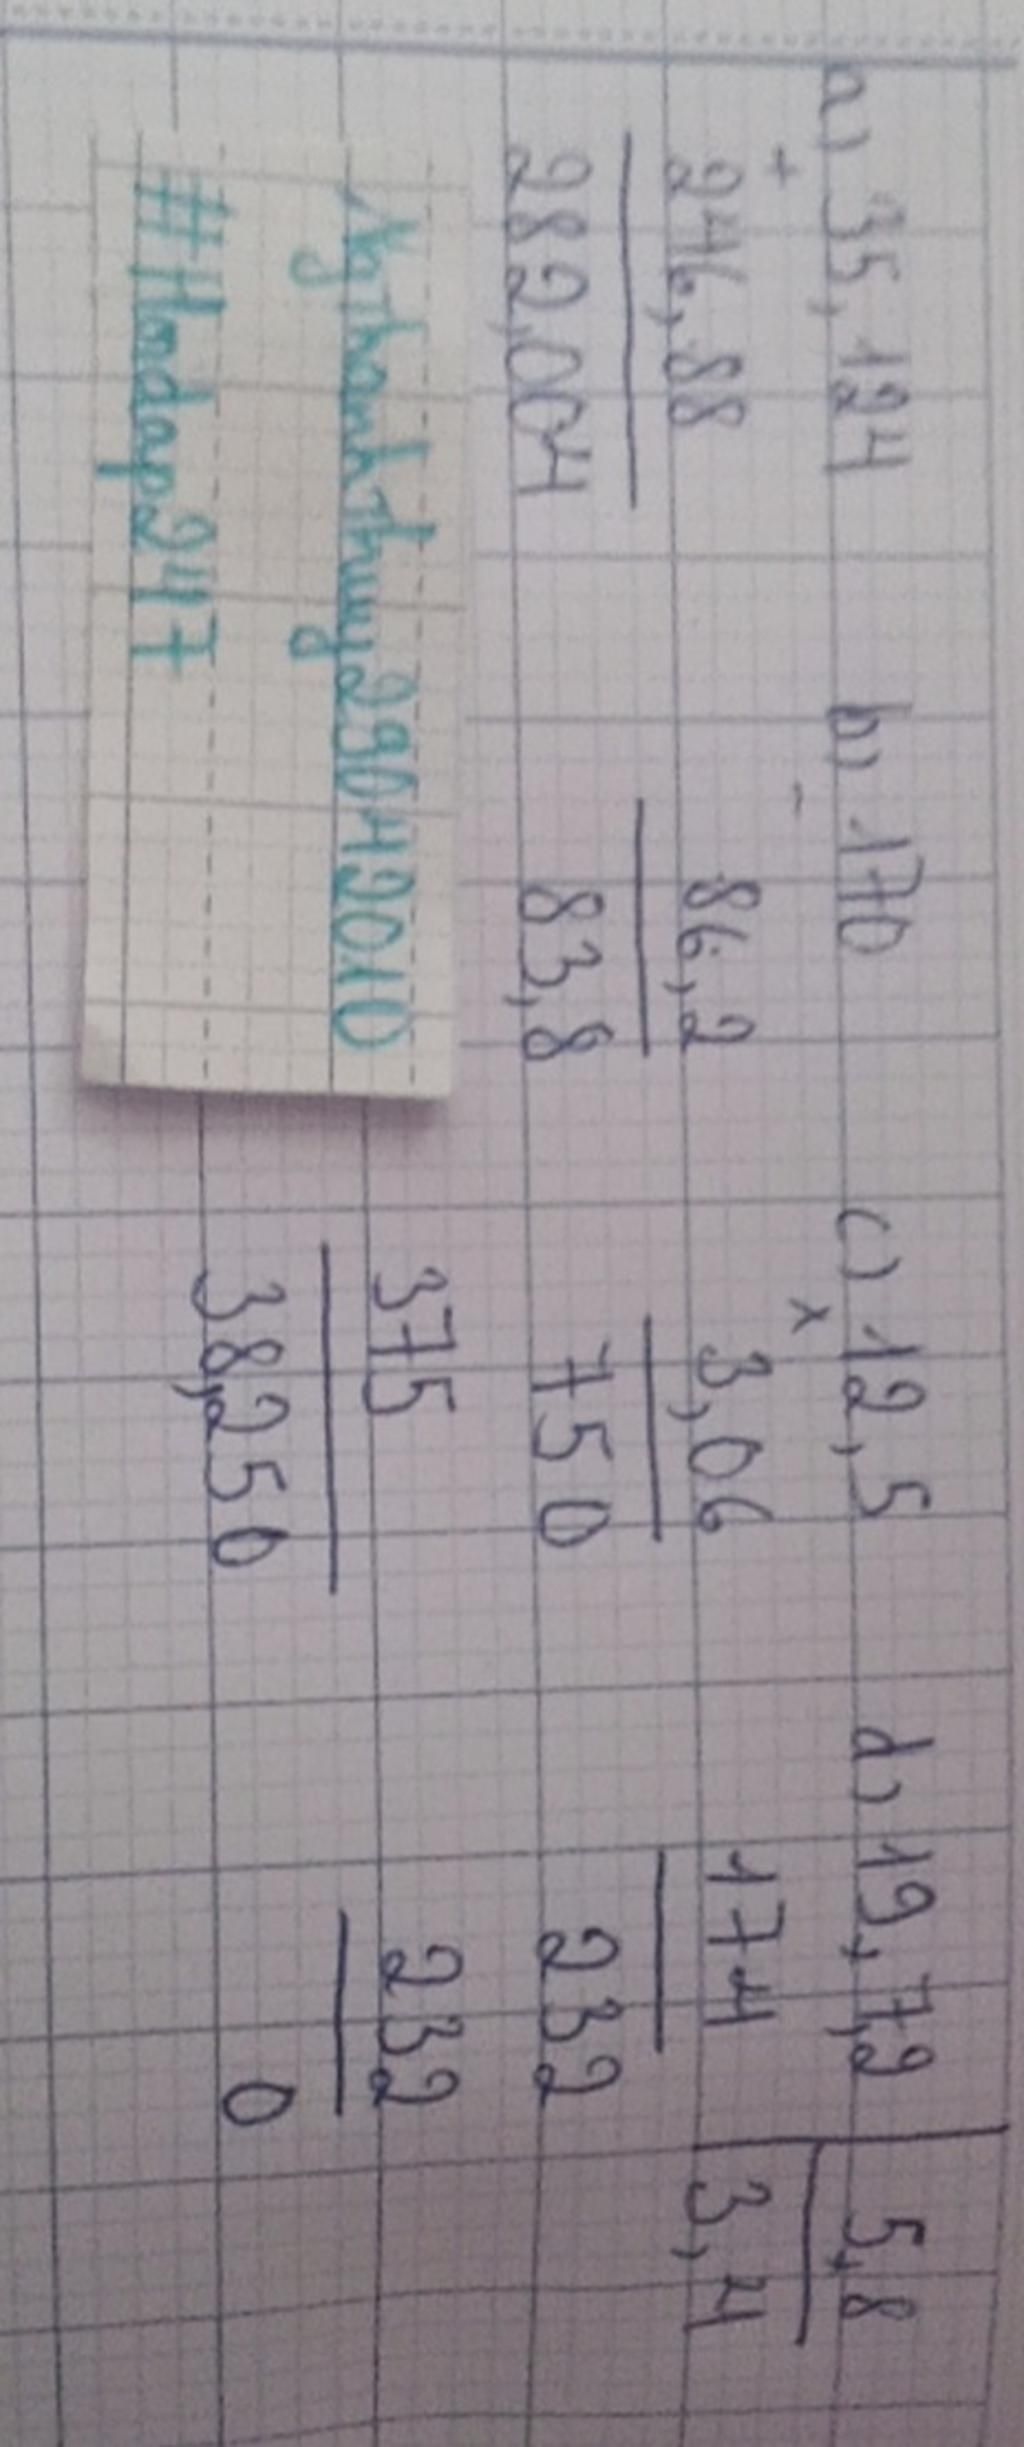 a) 35,124
+
246,88
282,004
b) 170
-
86,2
83,8
c) 12,5
x
3,06
750
375
38,250
d) 19,7,2 5,8
174 3,4
232
232
0
Ngthanhthuy29042010
#Hoidap247